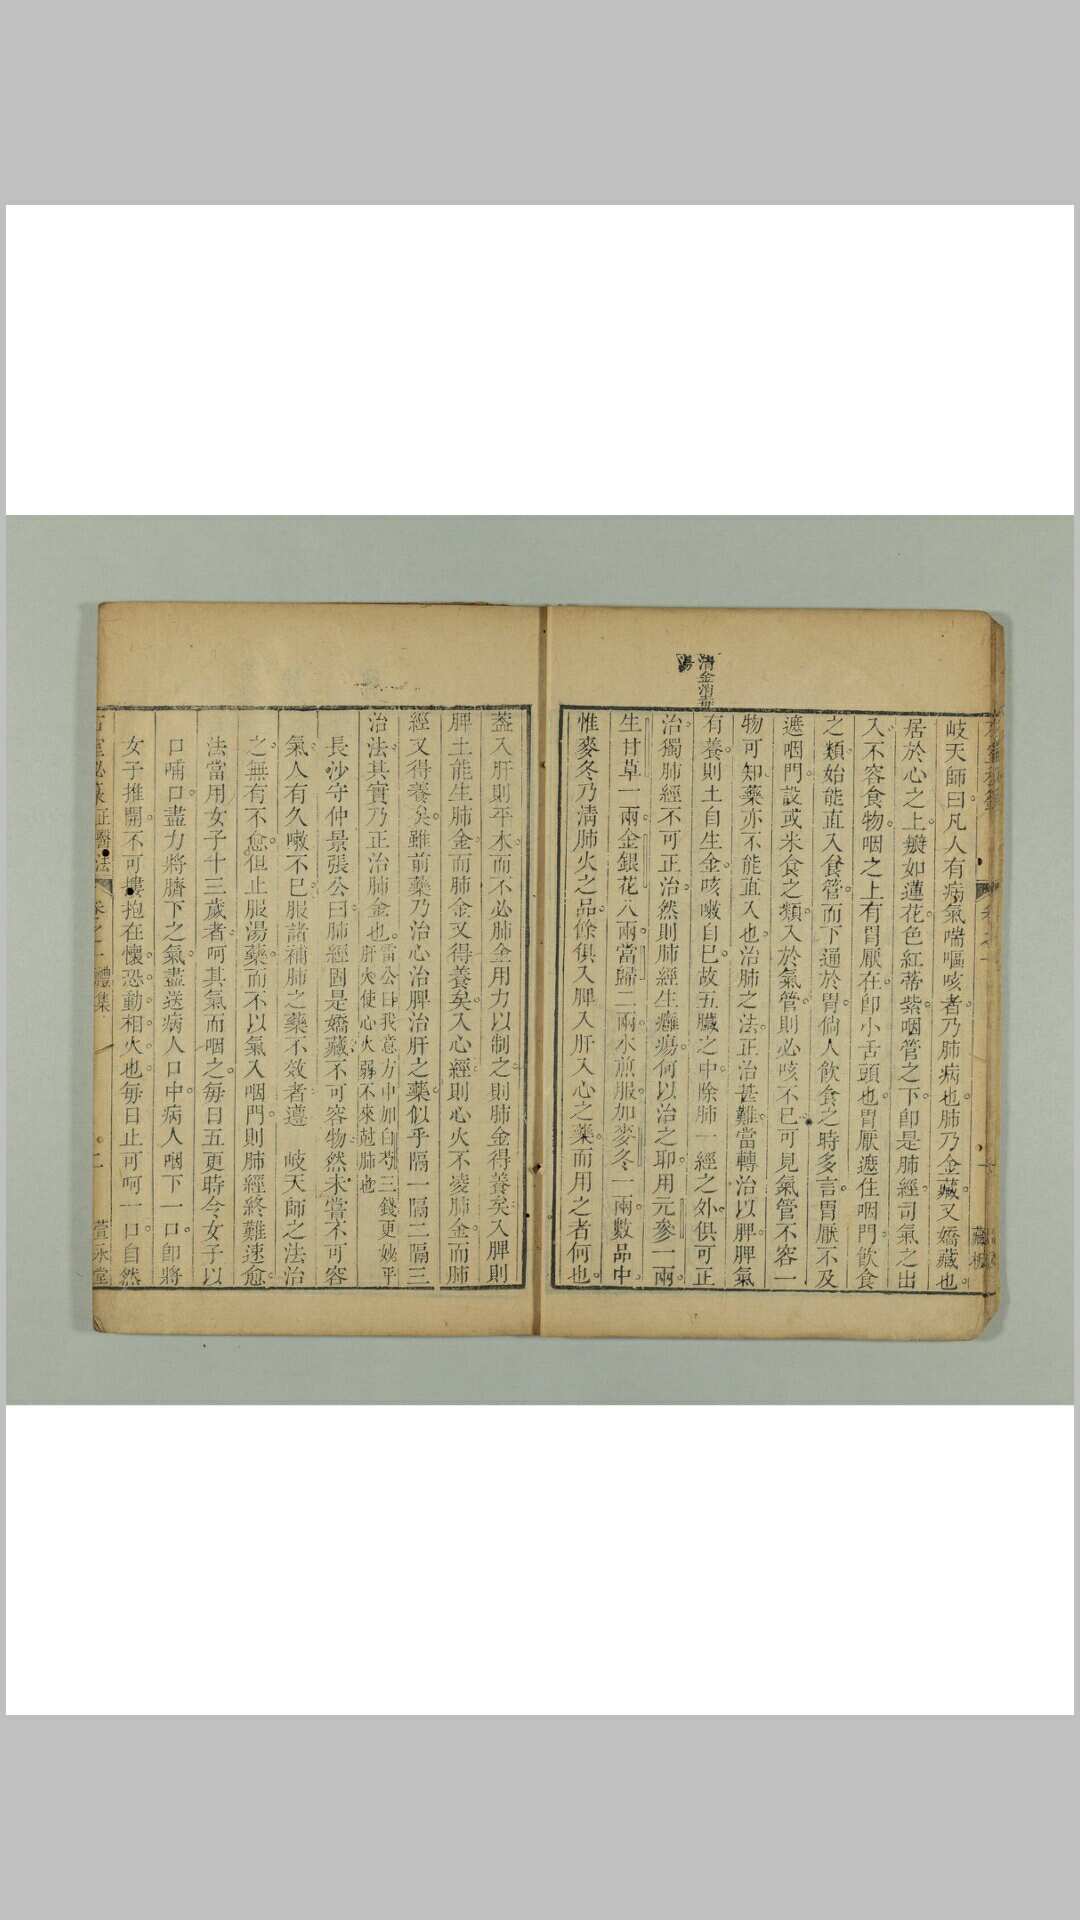 清金消毒
湯
岐天師曰。凡人有病氣喘嘔咳者。乃肺病也。肺乃金藏。又嬌藏也。
居於心之上。瓣如蓮花。色紅蒂紫。咽管之下。卽是肺經。司氣之出
入。不容食物。咽之上有胃厭在。卽小舌頭也。胃厭遮住咽門。飲食
之類。始能直入食管。而下通於胃。倘人飲食之時多言。胃厭不及
遮咽門。設或米食之類。入於氣管。則必咳不已。可見氣管不容一
物。可知藥亦不能直入也。治肺之法。正治甚難。當轉治以脾。脾氣
有養。則土自生金。咳嗽自已。故五臟之中。除肺一經之外。俱可正
治。獨肺經不可正治。然則肺經生癰瘍。何以治之耶。用元參一兩。
生甘草一兩。金銀花八兩。當歸二兩。水煎服。加麥冬一兩。數品中。
惟麥冬乃清肺火之品。餘俱入脾入肝入心之藥。而用之者何也。
蓋入肝則平木。而不必肺金用力以制之。則肺金得養矣。入脾則
脾土能生肺金。而肺金又得養矣。入心經。則心火不凌肺金。而肺
經又得養矣。雖前藥乃治心治脾治肝之藥。似乎隔一隔二隔三
治法。其實乃正治肺金也。雷公曰我意方中加白芍三錢更妙平
肝火使心火弱不來尅肺也
長沙守仲景張公曰。肺經固是嬌藏。不可容物。然未嘗不可容
氣。人有久嗽不已。服諸補肺之藥不效者。遵 岐天師之法治
之。無有不愈。但止服湯藥。而不以氣入咽門。則肺經終難速愈。
法當用女子十三歲者。呵其氣而咽之。每日五更時。令女子以
口哺口。盡力將臍下之氣。盡送病人口中。病人咽下一口。卽將
女子推開。不可摟抱在懷。恐動相火也。每日止可呵一口。自然
卷之一 禮集
二
萱永堂
藏板